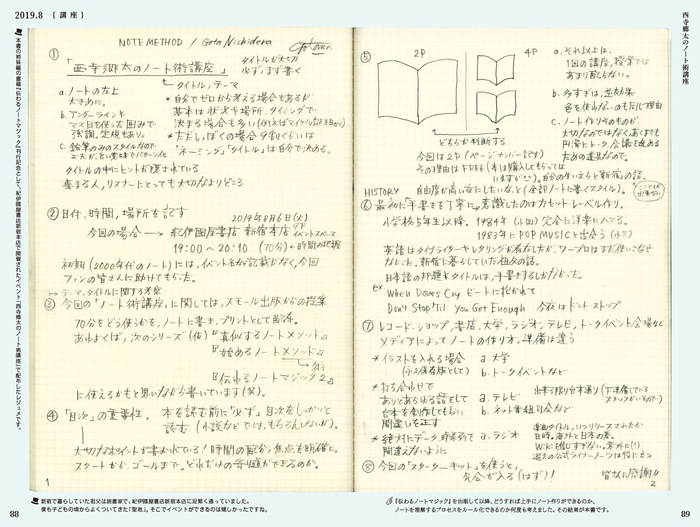 2019.8 [講座]
西寺郷太のノート術講座
本書の姉妹編の書籍『伝わるノートマジック』刊行記念として、紀伊國屋書店新宿本店で開催されたイベント「西寺郷太のノート術講座」で配布したレジュメです。
NOTE METHOD / Gota Nishidera
①
「西寺郷太のノート術講座」
タイトルが大切
必ず、まず書く
タイトル、テーマ
a. ノートの左上
大きめに。
b. アンダーラインド
マス目を使った囲みで
強調。定規もあり。
c. 鉛筆のみのスタイルなので
*自分でゼロから考える場合もあるが
基本は状況や場所、タイミングで
決まる場合も多い
*ただし、ぼくの場合9割くらいは
「ネーミング」「タイトル」は自分で決める。
タイトルの中にヒントが隠されている
集まる人、リスナーにとっても大切なよりどころ
② 日付、時間、場所を記す
2019年8月6日(火)
今回の場合 → 紀伊國屋書店 新宿本店 9F
イベントスペース
19:00〜20:10 (70分) ←時間の把握
初期(2000年代のノート)には、イベント名が記載がなく、今回
ファンの皆さんに助けてもらった。
テーマ、タイトルに関する考察
③ 今回の「ノート術講座」に関しては、スモール出版からの提案
70分をどう使うかを、ノートに書き、プリントとして配布。
あわよくば、次のシリーズ(仮)『真似するノートメソッド』
『始めるノートメソッド』
→術
『伝わるノートマジック2』
に使えるかもと思いながら書いています(笑)。
④ 「目次」の重要性。 本を読む前に"必ず"目次をしっかりと
読む (小説などでは、もちろんしないが)。
大切なポイントが書かれている! 時間の配分、焦点も明確に。
スタートから、ゴールまで。どれだけの寄り道ができるのか。
1
⑤
2P
4P
どちらか判断する
a. それ以上は、
1回の講座、授業では
あまり配らない。
b. 多すぎは、逆効果
色を使わないのも同じ理由
c. ノート作りそのものが、
大切なのではなく、あくまでも
円滑にトーク、会議を進める
ための道具なので。
今回は2P(ページナンバー記す)
その理由はFREE(本は購入してもらって
いますが)。自分の生い立ちと新宿の話。
自由度が高い流にしたいなと(全部ノートに書くスタイル)。
HISTORY
⑥ 最初に「手書きを丁寧に」意識したのはカセットレーベル作り。
小学校5年生以降。 1984年(小5)完全に洋楽にハマる。
1983年にPOP MUSICと出会う(小4)
英語はタイプライターやレタリングが存在したが、ワープロはまだ使いこなせ
なかった。新宿に暮らしていた祖父の話。
日本語の邦題やタイトルは、手書きするしかなかった。
ex When Doves Cry ビートに抱かれて
Don't Stop 'til You Get Enough 今夜はドント・ストップ
⑦ レコード、ショップ、書店、大学、ラジオ、テレビ、トークイベント会場など
メディアによってノートの作り方、準備は違う
*イラストを入れる場合
(永久保存版として)
a. 大学
b. トークイベントなど
*打ち合わせで
ありとあらゆる話をして
台本を制作してもらい
間違いを正す
a. テレビ
b. ネット番組司会など
出来る限り台本通り(下準備している
スタッフがいるので)
*絶対にデータ、時系列で
間違えないように
a. ラジオ
洋曲タイトル、いつリリースされたか
日時。海外と日本の差。
⑧ 今回の「スターターキット」を使うと、
気合が入る(はず)!
皆さんに感謝!!
2
88
新宿で暮らしていた祖父は読書家で、紀伊國屋書店新宿本店に足繁く通っていました。
僕も子どもの頃からよくついてきた「聖地」。そこでイベントができるのは嬉しかったですね。
『伝わるノートマジック』を出版して以降、どうすれば上手にノート作りができるのか、
ノートを理解するプロセスをルール化できるのか何度も考えました。その結果が本書です。
89